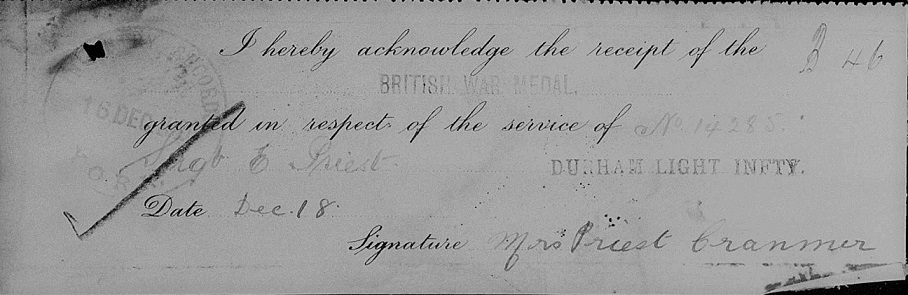 I hereby acknowledge the receipt of the B 46
BRITISH WAR MEDAL.
granted in respect of the service of No. 14285.
Sagt E Priest DURHAM LIGHT INFTY.
Date Dec. 18.
Signature Mrs Priest Cranmer
16 DEC
YORK